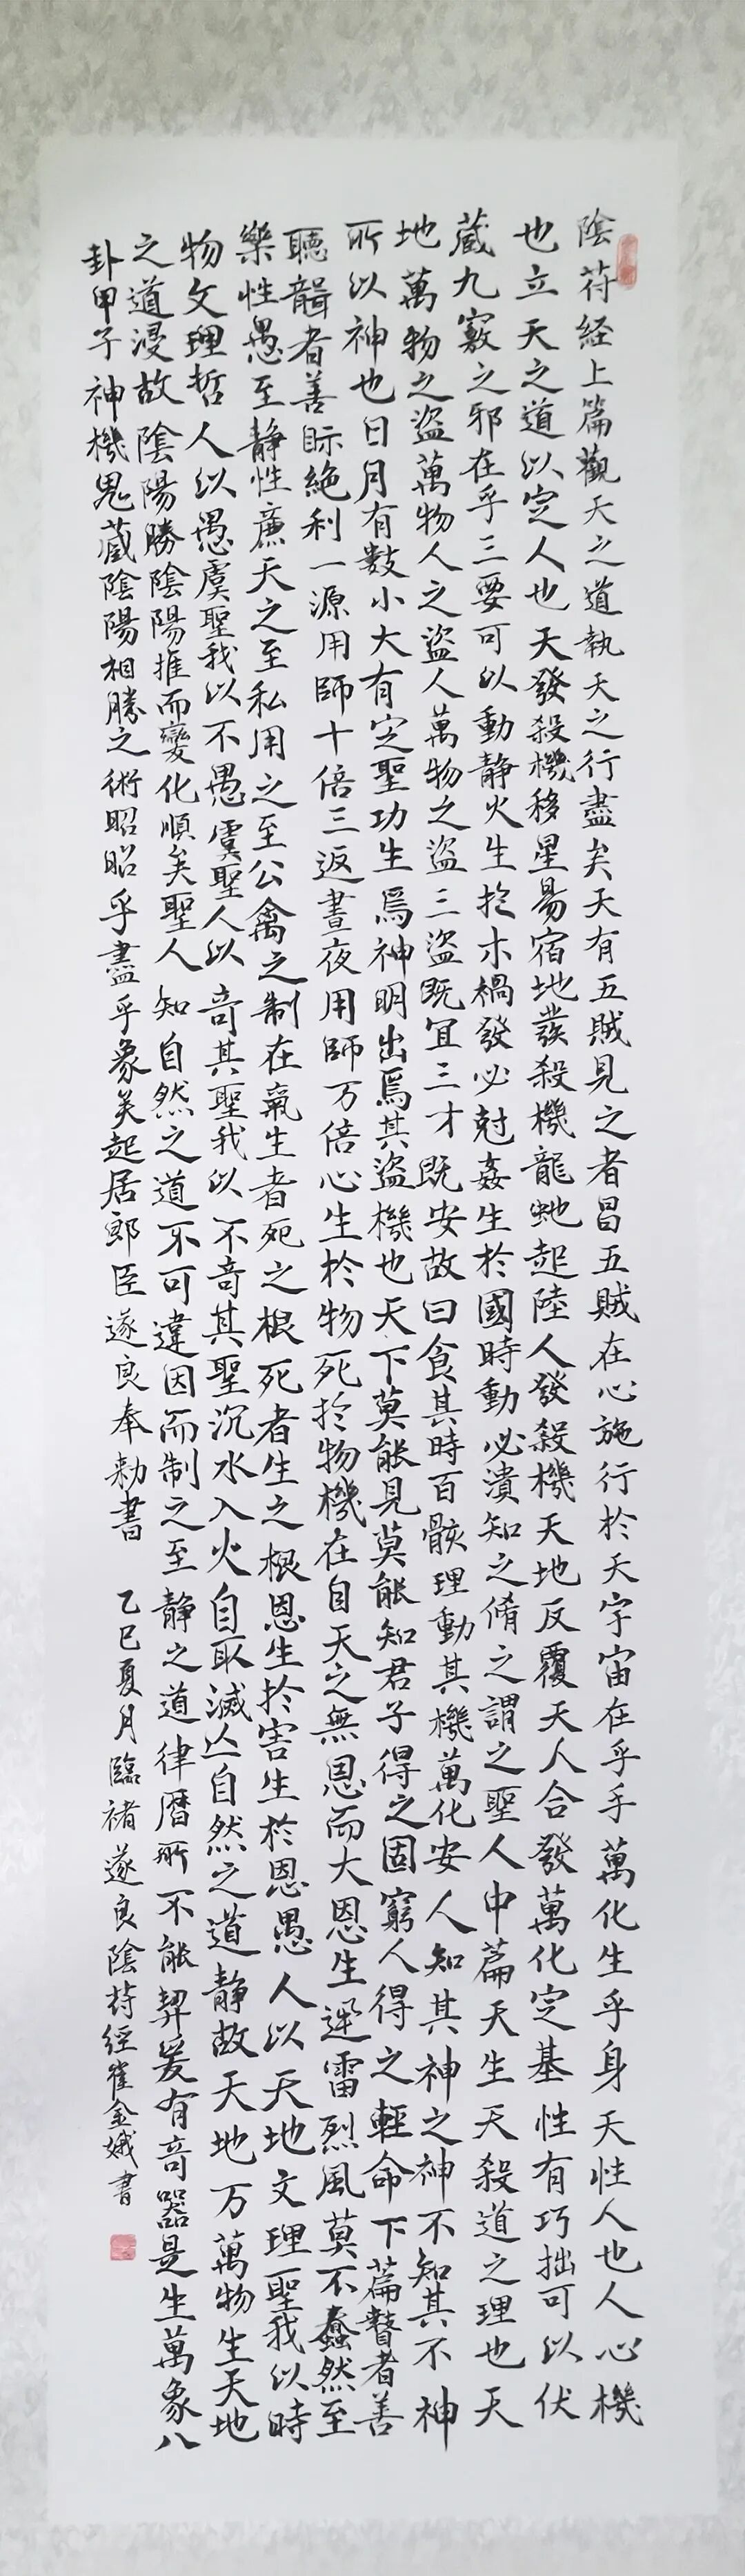 陰苻経上篇觀天之道執天之行盡矣天有五賊見之者昌五賊在心施行於天宇宙在乎手萬化生乎身天性人也人心機
也立天之道以定人也天發殺機移星易宿地發殺機龍虵起陸人發殺機天地反覆天人合發萬化定基性有巧拙可以伏
蔵九竅之邪在乎三要可以動静火生扵木禍發必尅姦生於國時動必潰知之脩之謂之聖人中篇天生天殺道之理也天
地萬物之盜萬物人之盜人萬物之盜三盜既冝三才既安故曰食其時百骸理動其機萬化安人知其神之神不知其不神
所以神也日月有數小大有定聖功生焉神明出焉其盜機也天下莫能見莫能知君子得之固窮人得之輕命下篇瞽者善
聽聾者善眎絶利一源用師十倍三返晝夜用師万倍心生於物死扵物機在自天之無恩而大恩生迅雷烈風莫不蠢然至
樂性愚至静性廉天之至私用之至公禽之制在氣生者死之根死者生之根恩生扵害生於恩愚人以天地文理聖我以時
物文理哲人以愚虞聖我以不愚虞聖人以竒其聖我以不竒其聖沉水入火自取滅亾自然之道静故天地万萬物生天地
之道浸故陰陽勝陰陽推而變化順矣聖人知自然之道不可違因而制之至静之道律曆所不能契爰有竒器是生萬象八
卦甲子神機鬼蔵陰陽相勝之術昭昭乎盡乎象矣起居郎臣遂良奉勅書 乙巳夏月臨褚遂良陰苻経崔金娥書